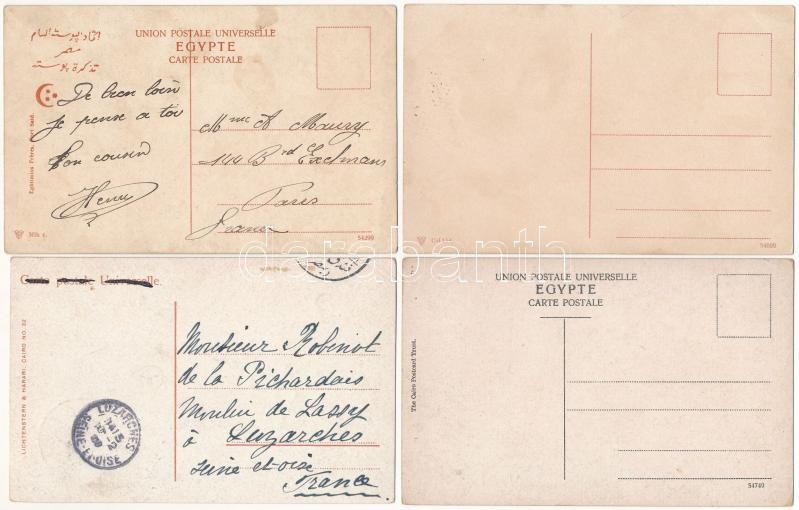 اتحاد پوسته العام
مصر
تذكرة پوسته
UNION POSTALE UNIVERSELLE
EGYPTE
CARTE POSTALE
De bien loin
je pense a toi
Ton cousin
Henri
Mme A Maury
144 Bd Exelmans
Paris
France
Port Said.
54299
darabanth
Carte postale Universelle.
LICHTENSTERN & HARARI, CAIRO NO. 32
LUZARCHES
SEINE-ET-OISE
Monsieur Robinot
de la Pichardais
Moulin de Lassy
à
Luzarches
Seine et oise
France
UNION POSTALE UNIVERSELLE
EGYPTE
CARTE POSTALE
The Cairo Postcard Trust.
54740